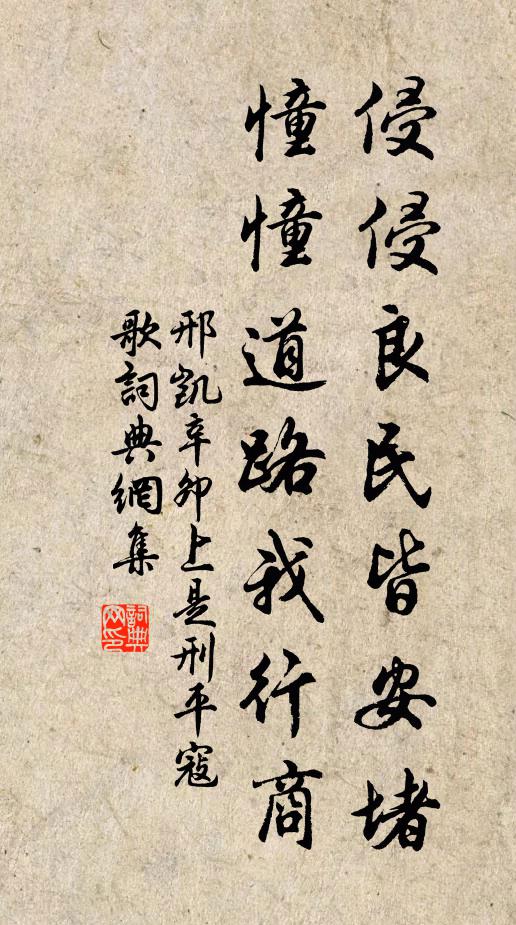 侵侵良民皆安堵
憧憧道路我行商
邢凱辛卯上是刑平寇
歌詞典網集
詞典
网印